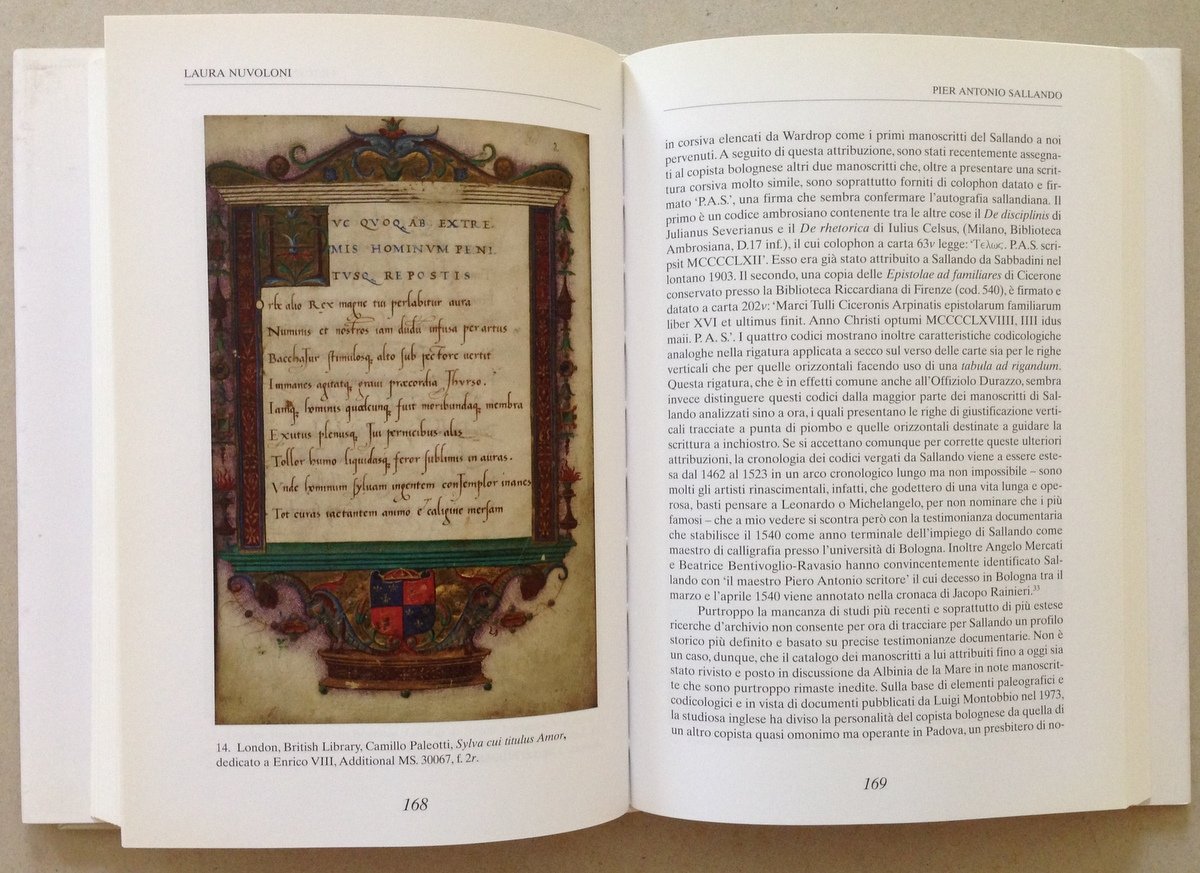 LAURA NUVOLONI
2.
HVC QVOQ AB EXTRE
MIS HOMINVM PENI
TVSQ REPOSTIS
Orbe alio Rex magne tui perlabitur aura
Numinis et nostros iam dudũ infusa per artus
Bacchatur stimulosq alto sub pectore uertit
Immanes agitatq graui præcordia Thyrso.
Iamq hominis quæcunq fuit moribundaq membra
Exutus plenusq Tui pernicibus alis
Tollor humo liquidasq feror sublimis in auras.
Vnde hominum syluam ingentem contemplor inanes
Tot curas iactantem animo e caligine mersam
14. London, British Library, Camillo Paleotti, Sylva cui titulus Amor,
dedicato a Enrico VIII, Additional MS. 30067, f. 2r.
168
PIER ANTONIO SALLANDO
in corsiva elencati da Wardrop come i primi manoscritti del Sallando a noi
pervenuti. A seguito di questa attribuzione, sono stati recentemente assegna-
ti al copista bolognese altri due manoscritti che, oltre a presentare una scrit-
tura corsiva molto simile, sono soprattutto forniti di colophon datato e fir-
mato ‘P.A.S.’, una firma che sembra confermare l’autografia sallandiana. Il
primo è un codice ambrosiano contenente tra le altre cose il De disciplinis di
Julianus Severianus e il De rhetorica di Iulius Celsus, (Milano, Biblioteca
Ambrosiana, D.17 inf.), il cui colophon a carta 63v legge: ‘Τελως. P.A.S. scri-
psit MCCCCLXII’. Esso era già stato attribuito a Sallando da Sabbadini nel
lontano 1903. Il secondo, una copia delle Epistolae ad familiares di Cicerone
conservato presso la Biblioteca Riccardiana di Firenze (cod. 540), è firmato e
datato a carta 202v: ‘Marci Tulli Ciceronis Arpinatis epistolarum familiarum
liber XVI et ultimus finit. Anno Christi optumi MCCCCLXVIIII, IIII idus
maii. P. A. S.’. I quattro codici mostrano inoltre caratteristiche codicologiche
analoghe nella rigatura applicata a secco sul verso delle carte sia per le righe
verticali che per quelle orizzontali facendo uso di una tabula ad rigandum.
Questa rigatura, che è in effetti comune anche all’Offiziolo Durazzo, sembra
invece distinguere questi codici dalla maggior parte dei manoscritti di Sal-
lando analizzati sino a ora, i quali presentano le righe di giustificazione verti-
cali tracciate a punta di piombo e quelle orizzontali destinate a guidare la
scrittura a inchiostro. Se si accettano comunque per corrette queste ulteriori
attribuzioni, la cronologia dei codici vergati da Sallando viene a essere este-
sa dal 1462 al 1523 in un arco cronologico lungo ma non impossibile – sono
molti gli artisti rinascimentali, infatti, che godettero di una vita lunga e ope-
rosa, basti pensare a Leonardo o Michelangelo, per non nominare che i più
famosi – che a mio vedere si scontra però con la testimonianza documentaria
che stabilisce il 1540 come anno terminale dell’impiego di Sallando come
maestro di calligrafia presso l’università di Bologna. Inoltre Angelo Mercati
e Beatrice Bentivoglio-Ravasio hanno convincentemente identificato Sal-
lando con ‘il maestro Piero Antonio scritore’ il cui decesso in Bologna tra il
marzo e l’aprile 1540 viene annotato nella cronaca di Jacopo Rainieri.³³
Purtroppo la mancanza di studi più recenti e soprattutto di più estese
ricerche d’archivio non consente per ora di tracciare per Sallando un profilo
storico più definito e basato su precise testimonianze documentarie. Non è
un caso, dunque, che il catalogo dei manoscritti a lui attribuiti fino a oggi sia
stato rivisto e posto in discussione da Albinia de la Mare in note manoscrit-
te che sono purtroppo rimaste inedite. Sulla base di elementi paleografici e
codicologici e in vista di documenti pubblicati da Luigi Montobbio nel 1973,
la studiosa inglese ha diviso la personalità del copista bolognese da quella di
un altro copista quasi omonimo ma operante in Padova, un presbitero di no-
169